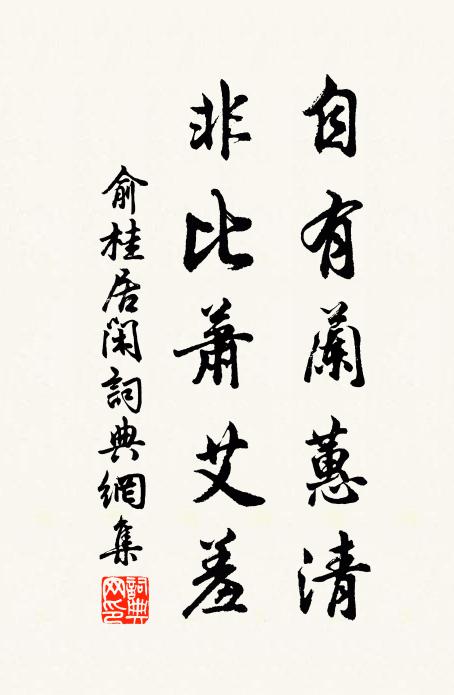 自有蘭蕙清
非比蕭艾羞
俞桂居閑詞典網集
詞典網印